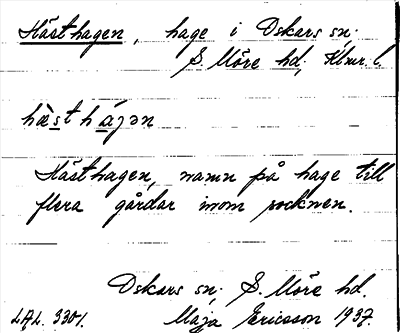 Hästhagen, hage i Oskars sn;
S. Möre hd; Klmr. l.
hæ̀st hágən
Hästhagen, namn på hage till
flera gårdar inom socknen.
Oskars sn; S. Möre hd.
LAL. 3301. Maja Ericsson 1937.